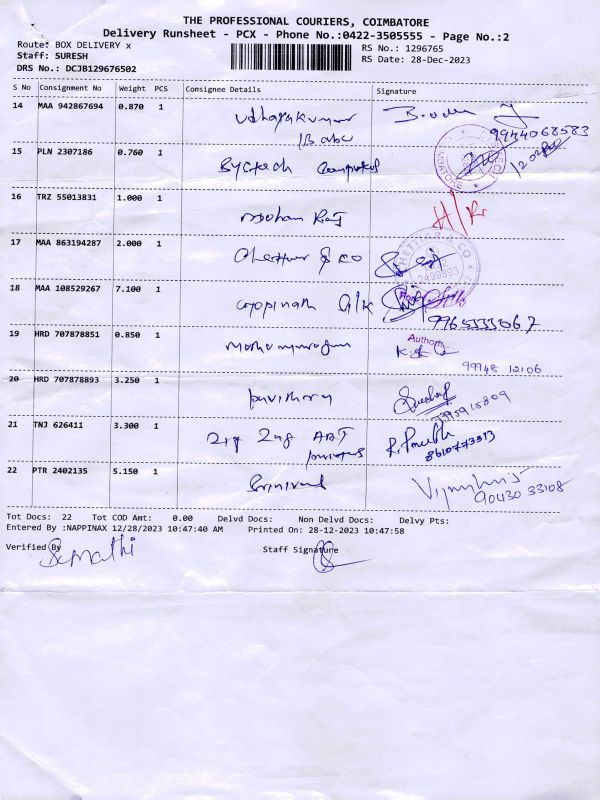 THE PROFESSIONAL COURIERS, COIMBATORE
Delivery Runsheet - PCX - Phone No.:0422-3505555 - Page No.:2
Route: BOX DELIVERY x
RS No.: 1296765
Staff: SURESH
RS Date: 28-Dec-2023
DRS No.: DCJB129676502
S No Consignment No Weight PCS Consignee Details Signature
14 MAA 942867694 0.870 1 Udhayakumar
Babu
9944068583
15 PLN 2307186 0.760 1 Bytech Computers
16 TRZ 55013831 1.000 1 Mohan Raj
17 MAA 863194287 2.000 1 Chettiar & Co
2499893
18 MAA 108529267 7.100 1 Gopinath G/K
9965333067
19 HRD 707878851 0.850 1
Author
99948 12106
20 HRD 707878893 3.250 1 pavithra
21 TNJ 626411 3.300 1 ART
8610773313
22 PTR 2402135 5.150 1 Srinivas
90430 33108
Tot Docs: 22 Tot COD Amt: 0.00 Delvd Docs: Non Delvd Docs: Delvy Pts:
Entered By :NAPPINAX 12/28/2023 10:47:40 AM Printed On: 28-12-2023 10:47:58
Verified By
Staff Signature